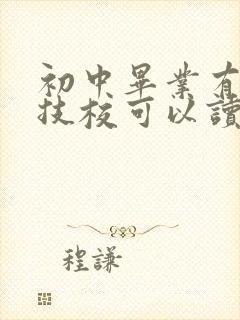 初中畢業有
技校可以讀
程謙